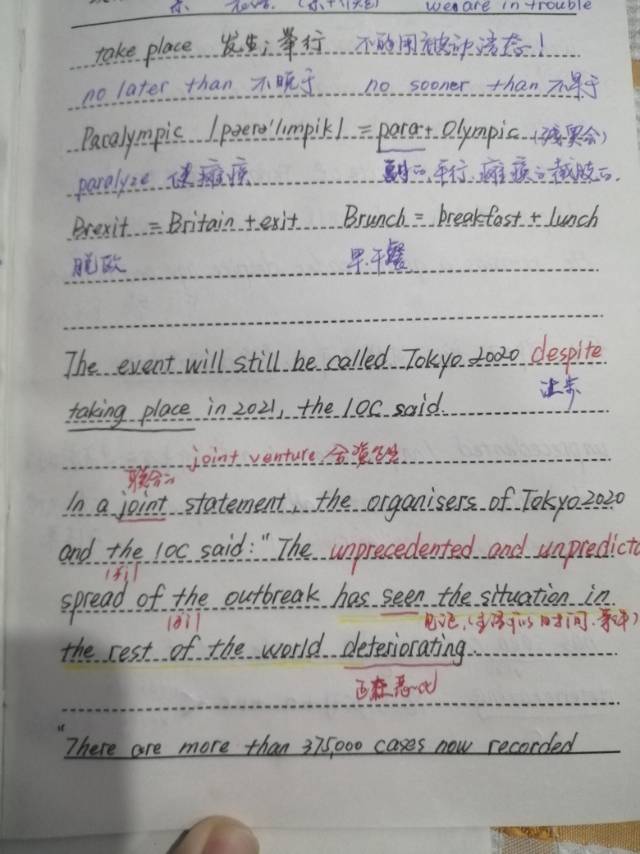 we are in trouble
take place 发生；举行 不能用被动语态！
no later than 不晚于 no sooner than 不早于
Paralympic /pærə'limpik/ = para + Olympic (残奥会)
paralyze 使瘫痪 平行. 瘫痪
Brexit = Britain + exit Brunch = breakfast + lunch
脱欧 早午餐
The event will still be called Tokyo 2020 despite
让步
taking place in 2021, the IOC said.
联合 joint venture 合资企业
In a joint statement, the organisers of Tokyo 2020
and the IOC said: "The unprecedented and unpredicta
/ði/
spread of the outbreak has seen the situation in
/ði/ 见证.
the rest of the world deteriorating.
正在恶化
"There are more than 375,000 cases now recorded